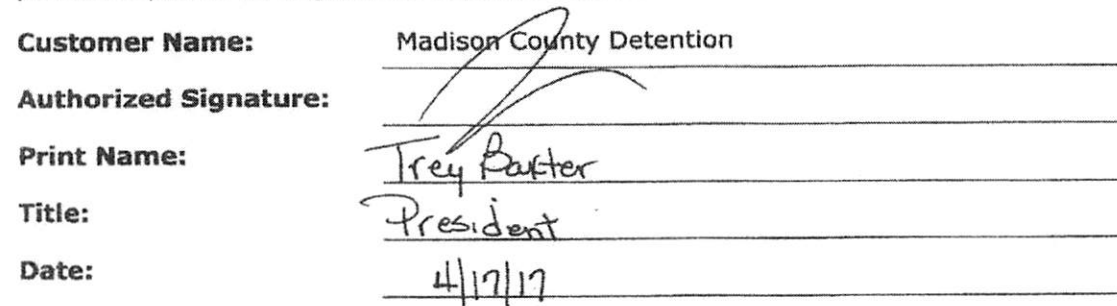 Customer Name: Madison County Detention
Authorized Signature:
Print Name: Trey Baxter
Title: President
Date: 4/17/17